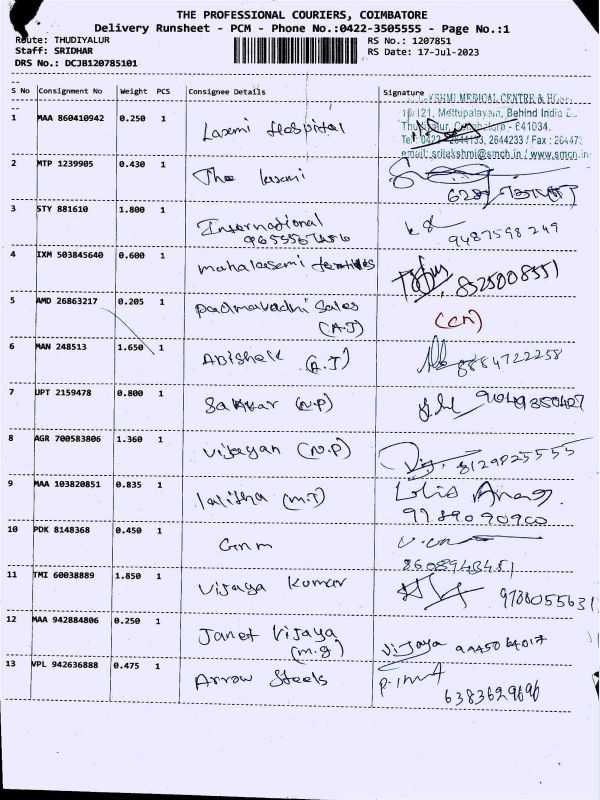 THE PROFESSIONAL COURIERS, COIMBATORE
Delivery Runsheet - PCM - Phone No.:0422-3505555 - Page No.:1
Route: THUDIYALUR
RS No.: 1207851
Staff: SRIDHAR
RS Date: 17-Jul-2023
DRS No.: DCJB120785101
S No Consignment No Weight PCS Consignee Details Signature
LAKSHMI MEDICAL CENTRE &
1 MAA 860410942 0.250 1 Laxmi Hospital
121, Mettupalayam, Behind India
Coimbatore - 641034.
2644133, 2644233 / Fax :
email: srilakshmi@smch.in / www.smch.in
2 MTP 1239905 0.430 1 The laxmi
3 STY 881610 1.800 1 International
9487598249
4 IXM 503845640 0.600 1 mahalaxmi textiles
8525008551
5 AMD 26863217 0.205 1 padmavadhi Sales
(A.J) (CM)
6 MAN 248513 1.650 1 Abishek (A.J) 8884722258
7 UPT 2159478 0.800 1 (N.P)
8 AGR 700583806 1.360 1 vijayan (N.P) 8129825555
9 MAA 103820851 0.835 1 lalitha (m.J)
9789090900
10 PDK 8148368 0.450 1 Gnm
8608943481
11 TMI 60038889 1.850 1 vijaya kumar 9788055631
12 MAA 942884806 0.250 1 Janet vijaya
(m.g) vijaya 9445064017
13 VPL 942636888 0.475 1 Arrow Steels
6383629696